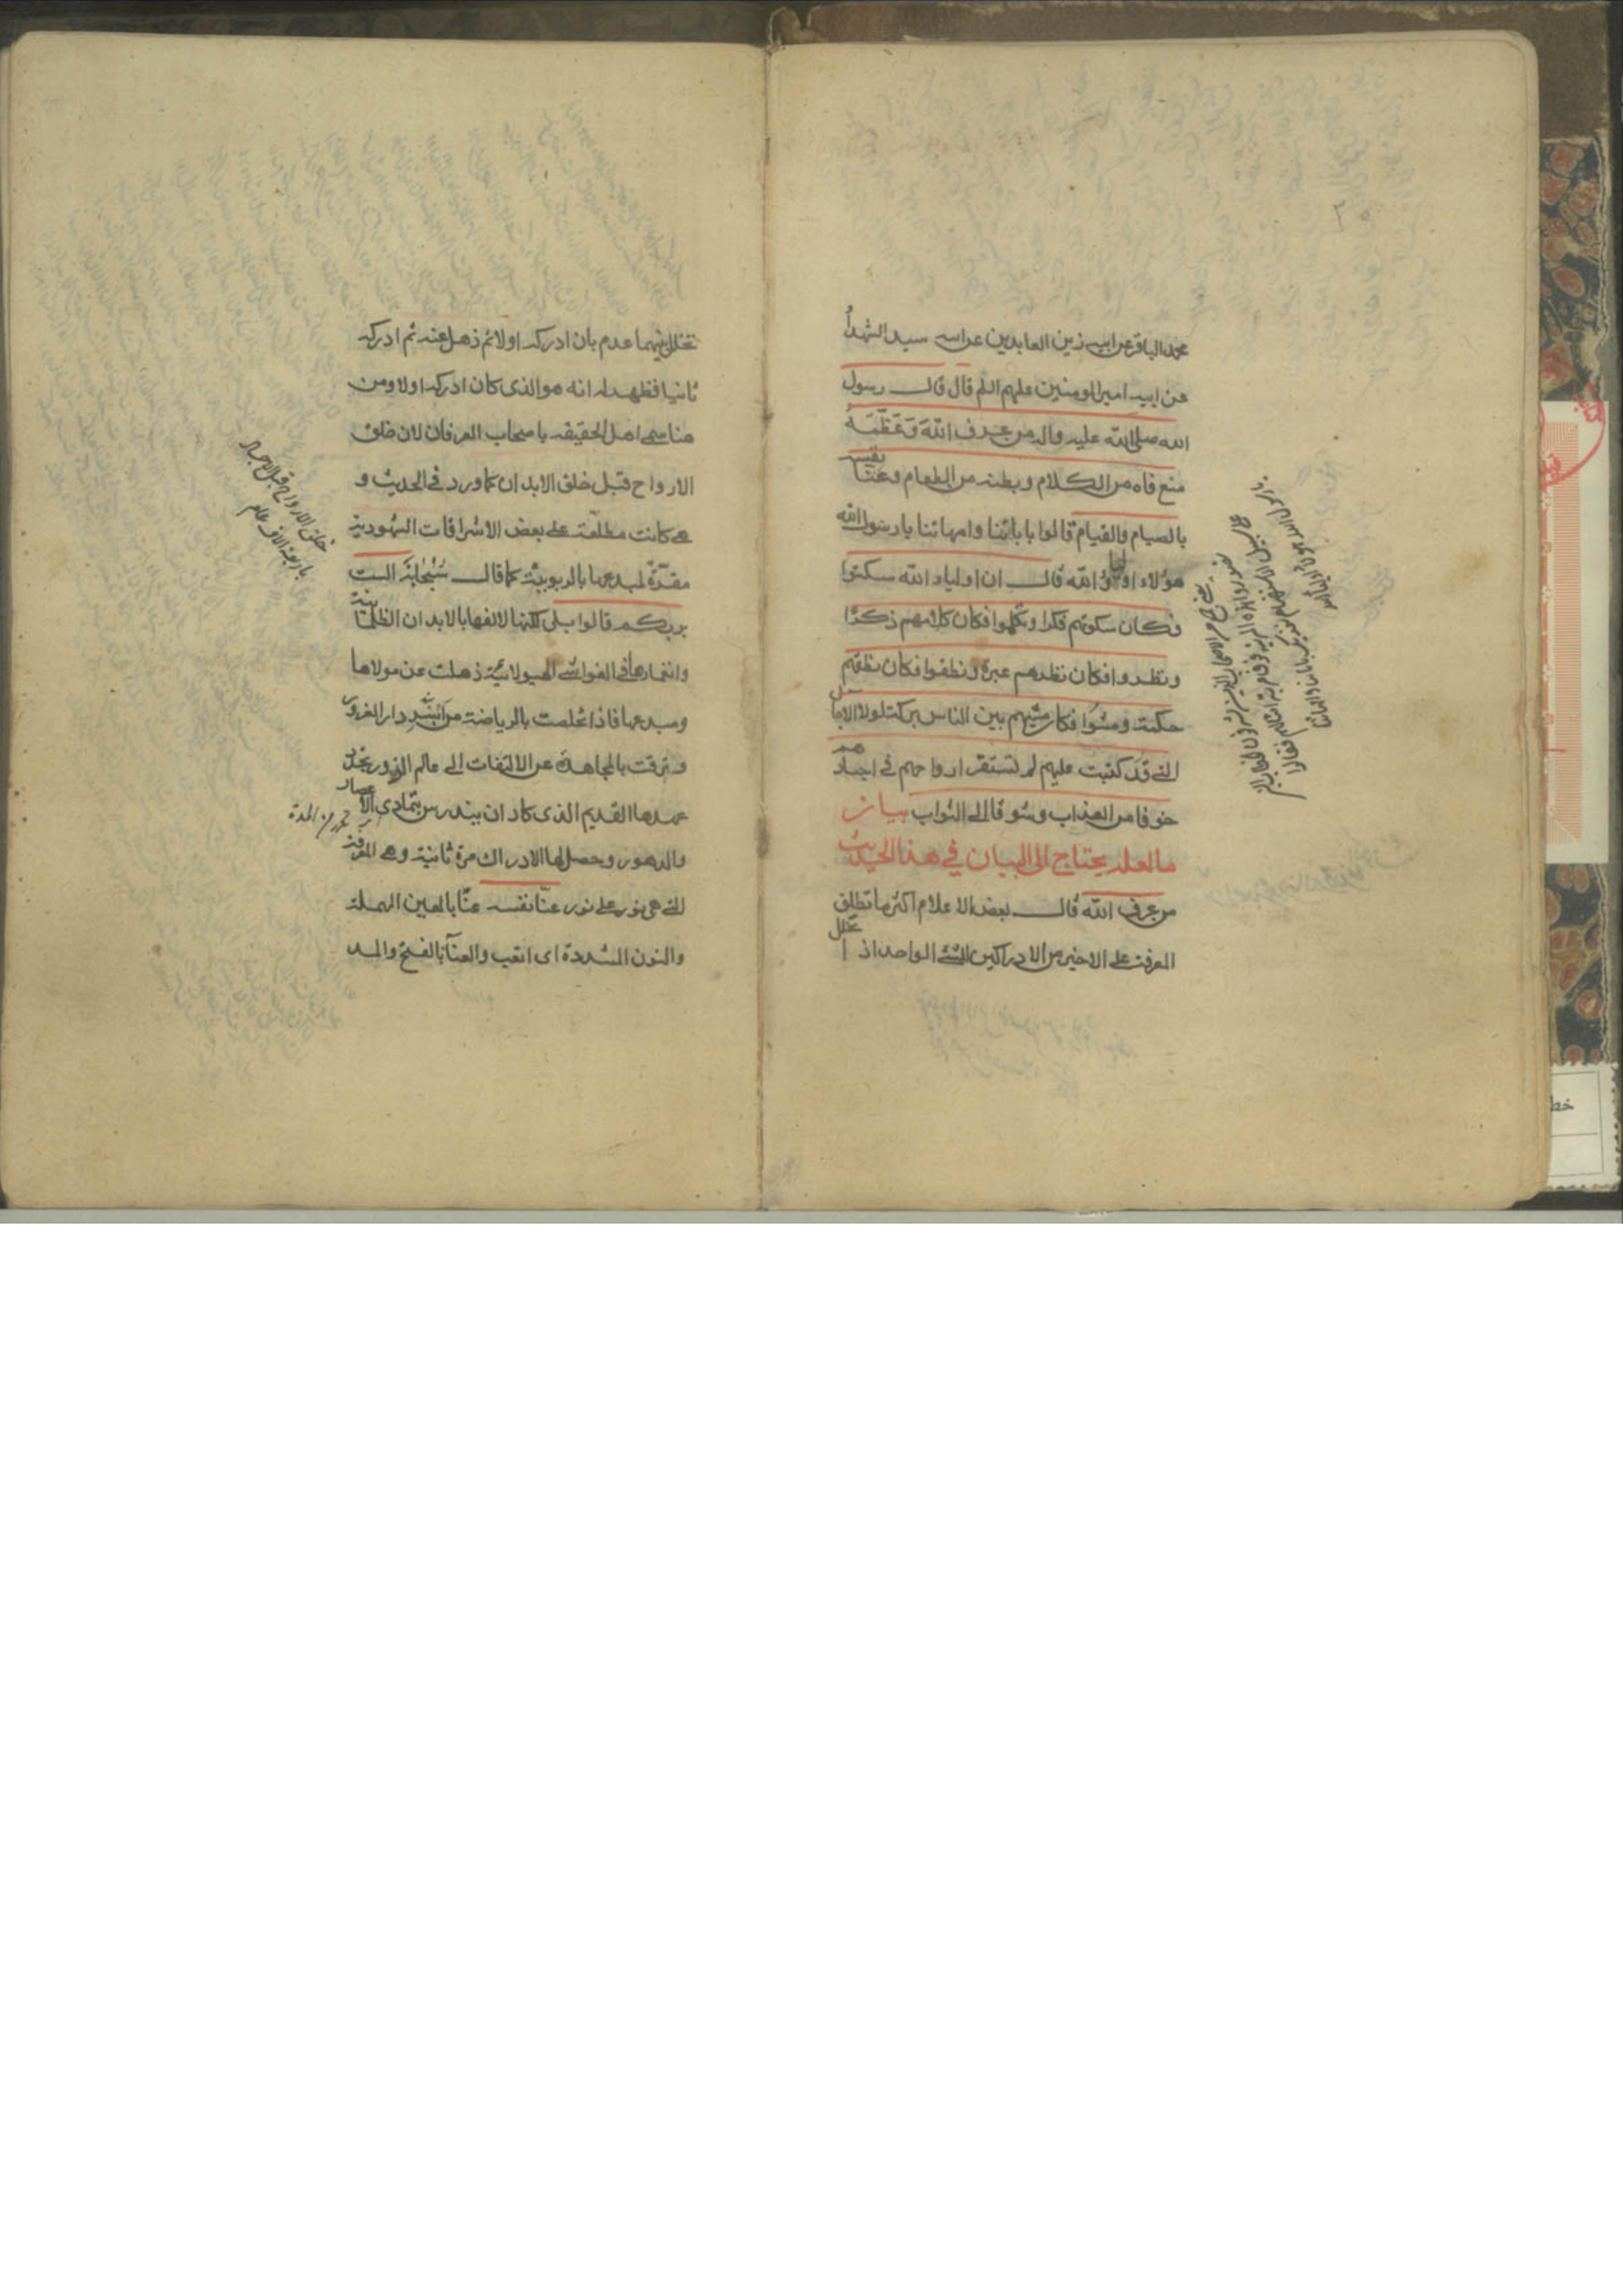 محمد الباقر عن ابيه زين العابدين عن ابيه سيد الشهدأ
عن ابيه امير المومنين عليهم السلم قال قال رسول
الله صلى الله عليه واله من عرف الله وعَظَّمَهُ
منع فاه من الكلام وبطنه من الطعام وعنّا نفسه
بالصيام والقيام قالوا بابائنا وامهاتنا يا رسول الله
هولاء اولياؤ الله قال ان اولياء الله سكتوا
فكان سكوتهم فكرا وتكلموا فكان كلامهم ذكرًا
ونظروا فكان نظرهم عبرة ونطقوا فكان نطقهم
حكمة ومشوا فكان مشيهم بين الناس بركة لولا الاجال
التي قد كتبت عليهم لم تستقر ارواحهم في اجسادهم
خوفا من العذاب وشوقا الى الثواب بيان
ما لعله يحتاج الى البيان في هذا الحديث
من عرف الله قال بعض الاعلام اكثر ما تطلق
المعرفة على الاخير من الادراكين للشئ الواحد اذا تخلل
تخلل بينهما عدم بان ادركه اولا ثم ذهل عنه ثم ادركه
ثانيا فظهر له انه هو الذى كان ادركه اولا ومن
هنا سمى اهل الحقيقه باصحاب العرفان لان خلق
الارواح قبل خلق الابدان كما ورد في الحديث و
هى كانت مطلعة على بعض الاشراقات الشهودية
مقرّة لمبدعها بالربوبيّة كما قال سُبْحَانَهُ الست
بربكم قالوا بلى لكنها لالفها بالابدان الظلمانية
وانغمارها فى الغواشى الهيولانيّة ذهلت عن مولاها
ومبدعها فاذا تخلصت بالرياضة من اسر دار الغرور
وترقت بالمجاهدة عن الالتفات الى عالم الزور تجدد
عهدها القديم الذى كاد ان يندرس بتمادى الاعصار
والدهور وحصل لها الادراك مرة ثانية وهى المعرفة
التى هى نور على نور عنّا نفسه عنّا بالعين المهملة
والنون المشددة اى اتعب والعنآ بالفتح والمد
خلق الارواح قبل الاجساد
باربعة الاف عام